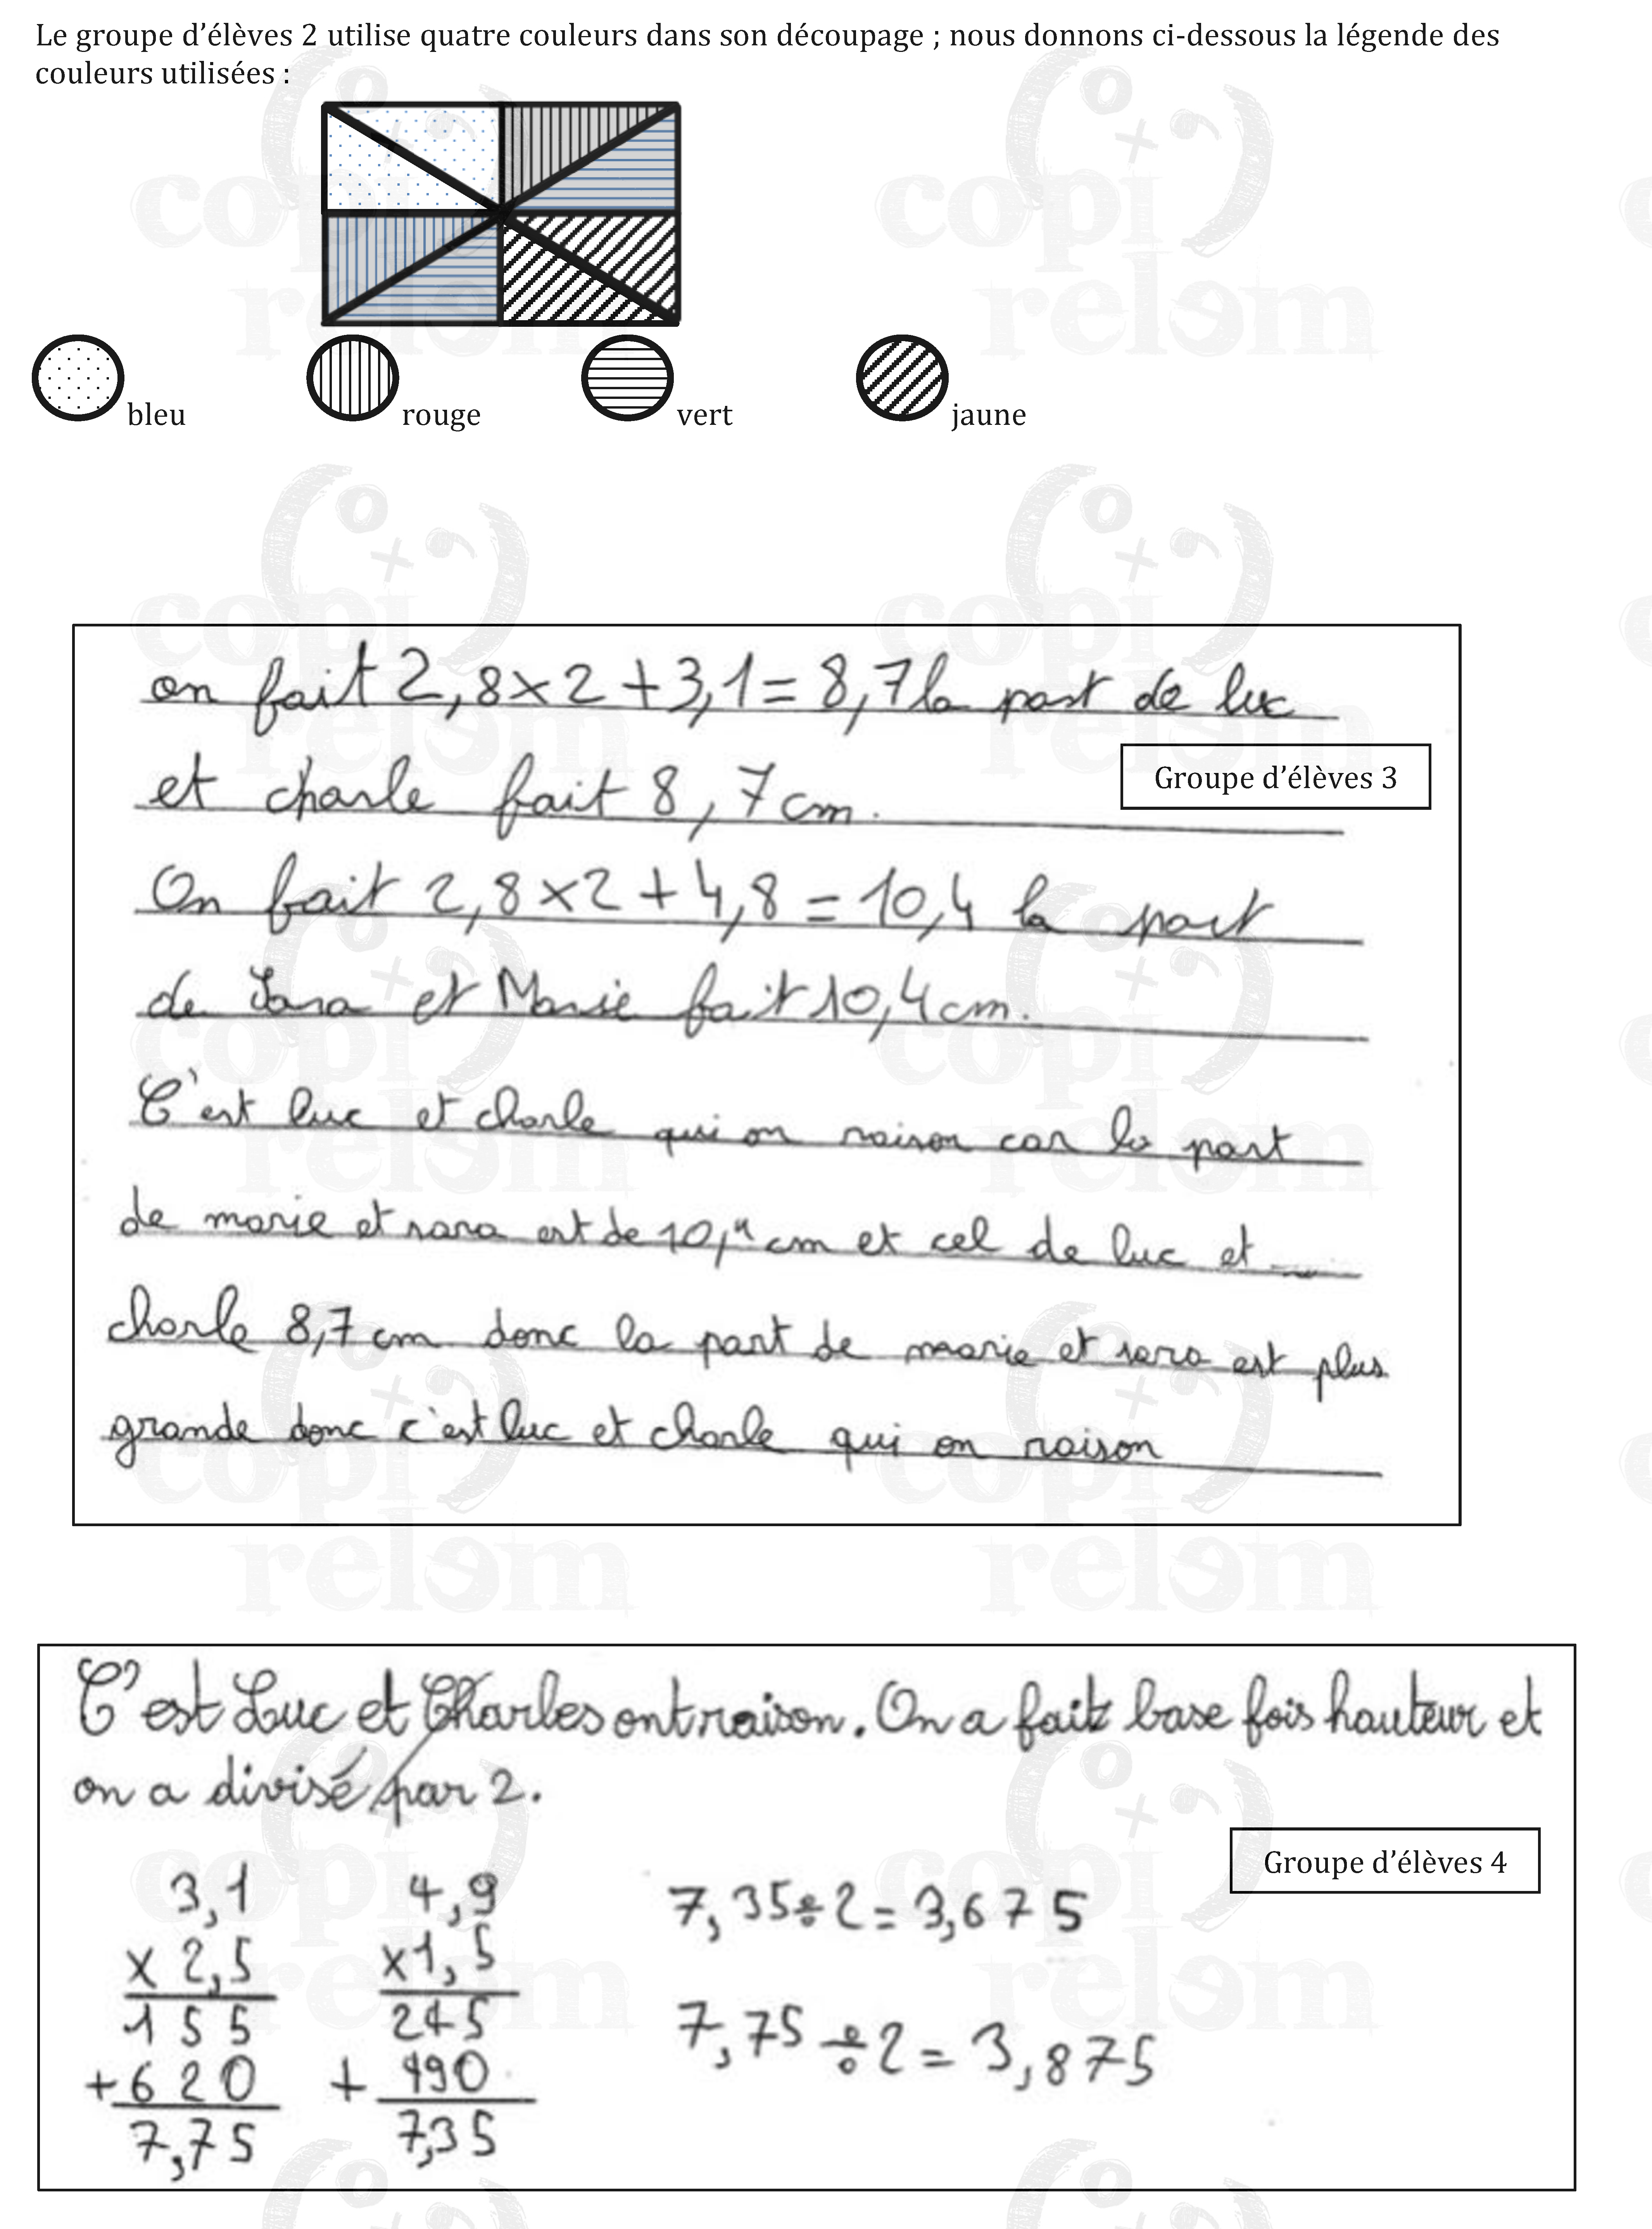 Le groupe d’élèves 2 utilise quatre couleurs dans son découpage ; nous donnons ci-dessous la légende des
couleurs utilisées :
bleu rouge vert jaune
on fait 2,8×2+3,1=8,7 la part de luc
et charle fait 8,7cm.
Groupe d’élèves 3
On fait 2,8×2+4,8=10,4 la part
de Sara et Marie fait 10,4cm.
C'est luc et charle qui on raison car la part
de marie et sara est de 10,4 cm et cel de luc et
charle 8,7cm donc la part de marie et sara est plus
grande donc c'est luc et charle qui on raison
C'est Luc et Charles ont raison. On a fait base fois hauteur et
on a divisé par 2.
Groupe d’élèves 4
3,1 4,9 7,35÷2=3,675
× 2,5 ×1,5
155 245 7,75÷2=3,875
+620 + 490
7,75 7,35
copi
relem